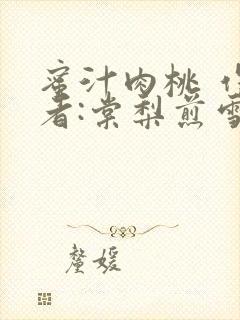 蜜汁肉桃 作
者:棠梨煎雪
鳌媛